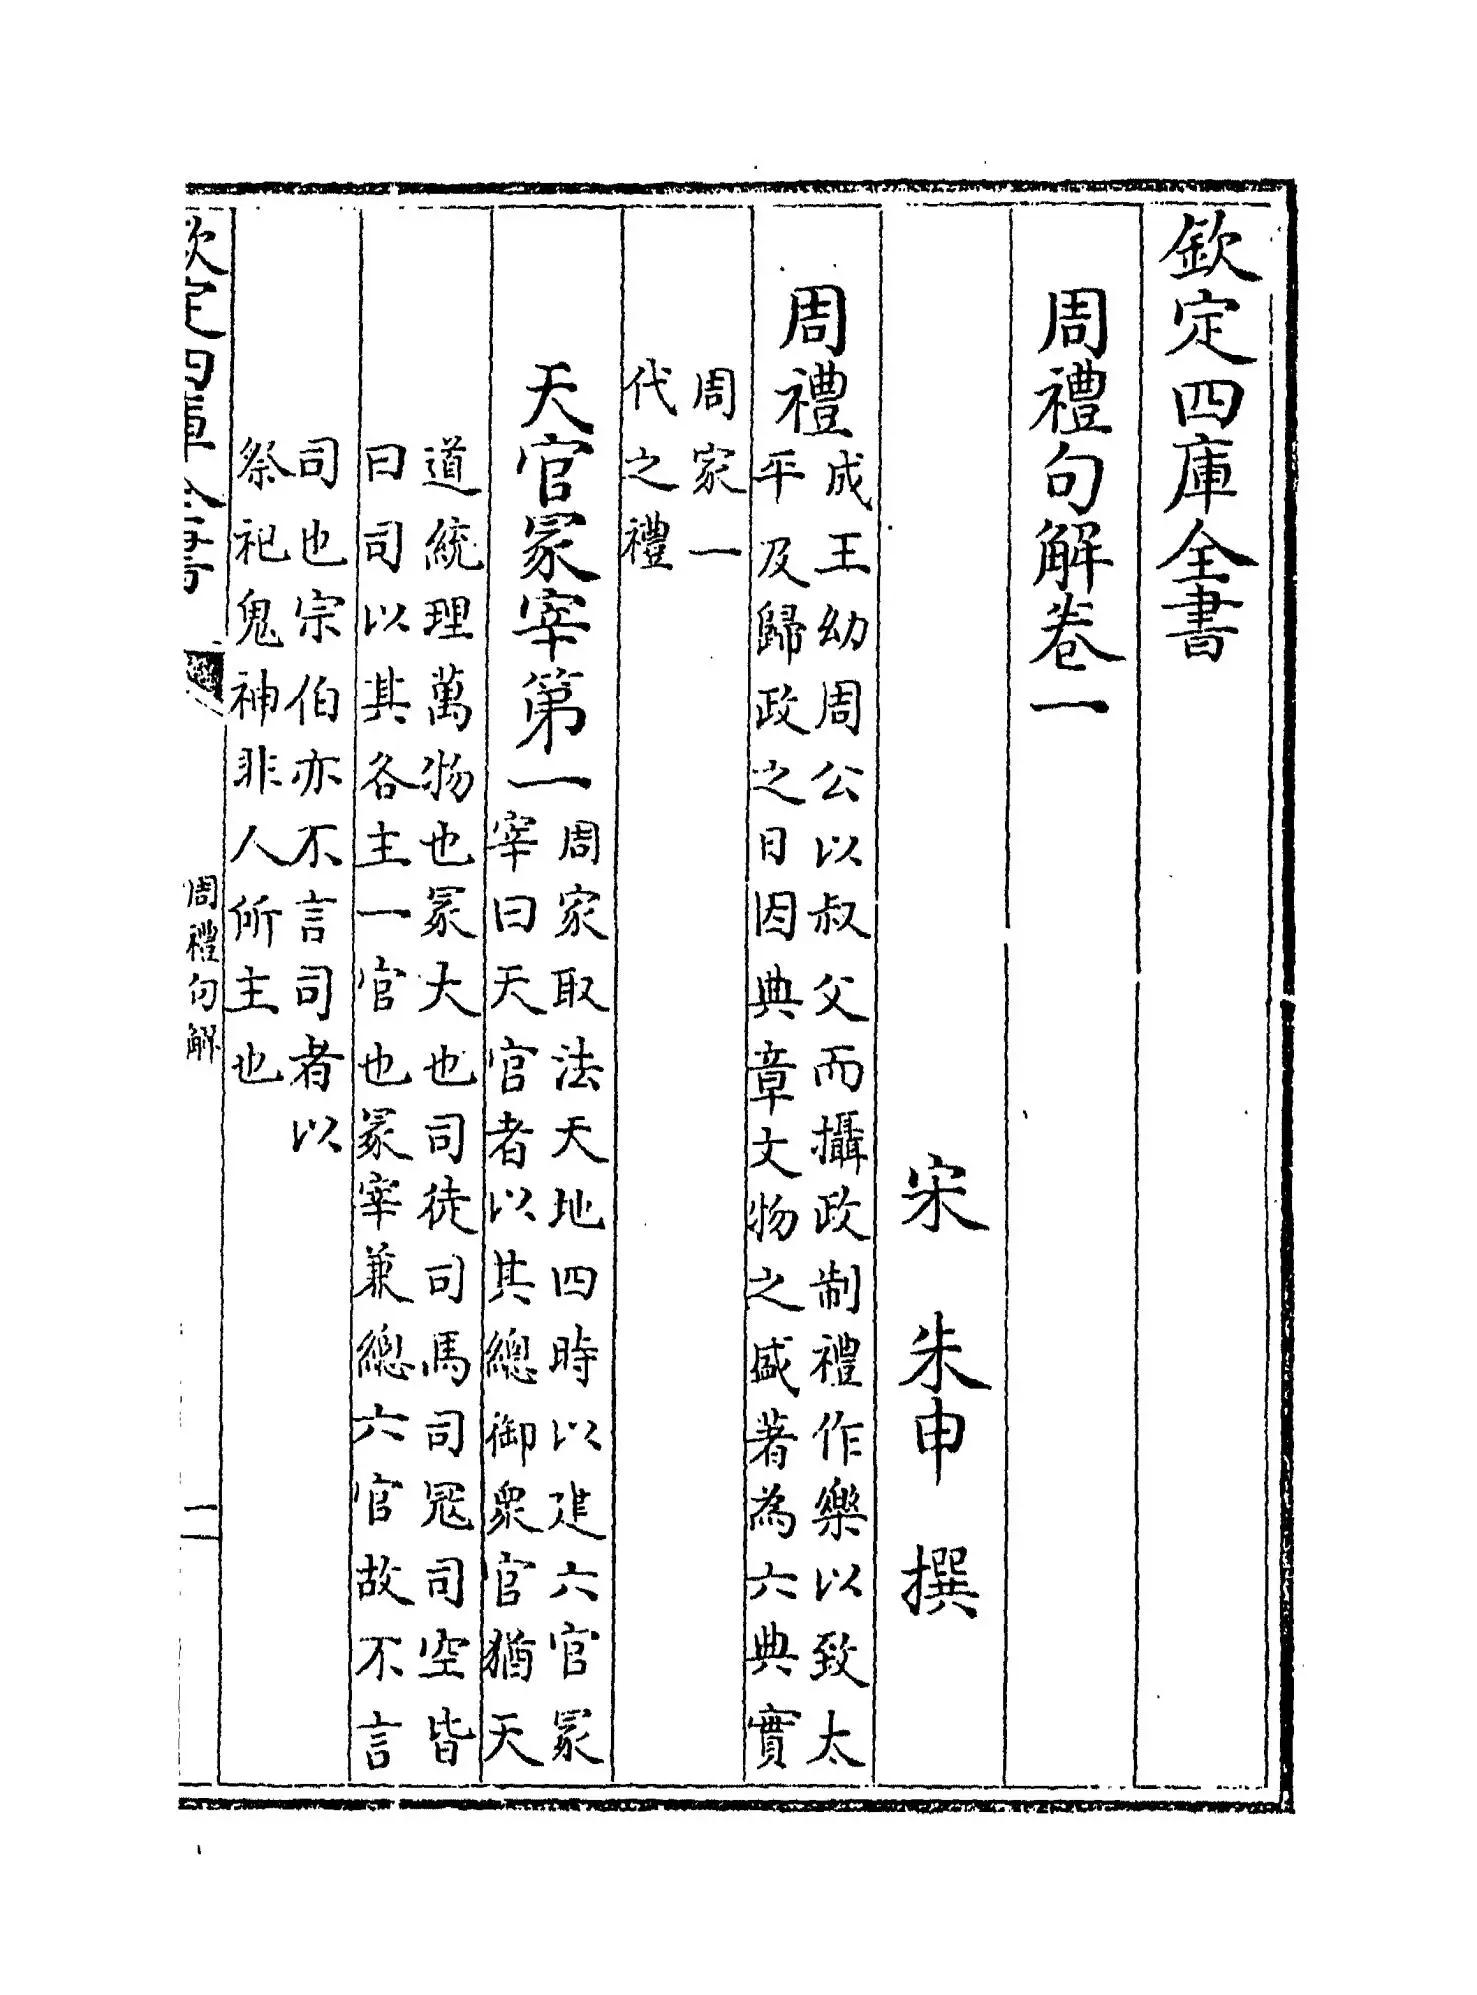 欽定四庫全書
周禮句解卷一
宋 朱申 撰
周禮
成王幼周公以叔父而攝政制禮作樂以致太
平及歸政之日因典章文物之盛著為六典實
周家一
代之禮
天官冢宰第一
周家取法天地四時以建六官冢
宰曰天官者以其總御衆官猶天
道統理萬物也冢大也司徒司馬司冦司空皆
曰司以其各主一官也冢宰兼總六官故不言
司也宗伯亦不言司者以
祭祀鬼神非人所主也
欽定四庫全書
周禮句解
一